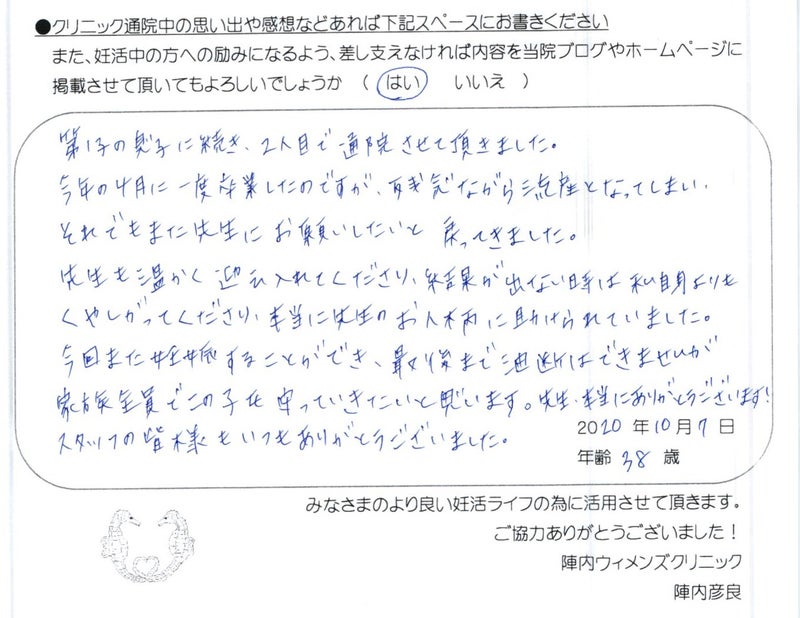 ●クリニック通院中の思い出や感想などあれば下記スペースにお書きください
また、妊活中の方への励みになるよう、差し支えなければ内容を当院ブログやホームページに
掲載させて頂いてもよろしいでしょうか （ はい いいえ ）
第1子の息子に続き、2人目で通院させて頂きました。
今年の4月に一度卒業したのですが、残念ながら流産となってしまい、
それでもまた先生にお願いしたいと戻ってきました。
先生も温かく迎え入れてくださり、結果が出ない時は私自身よりも
くやしがってくださり、本当に先生のお人柄に助けられていました。
今回また妊娠することができ、最後まで油断はできませんが
家族全員でこの子を守っていきたいと思います。先生、本当にありがとうございます!
スタッフの皆様もいつもありがとうございました。
2020 年 10 月 7 日
年齢 38 歳
みなさまのより良い妊活ライフの為に活用させて頂きます。
ご協力ありがとうございました！
陣内ウィメンズクリニック
陣内彦良